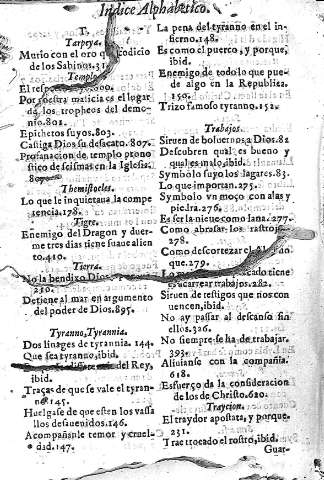 Indice Alphabetico.
T.
Tarpeya.
Murio con el oro que codicio
de los Sabinos.31
Templo
El resp
Por nuestra malicia es el lugar
de los tropheos del demo-
nio.801.
Epichetos suyos.803.
Castiga Dios su desacato. 807.
Profanacion de templo prono
stico de scismas en la Iglesia.
Themistocles.
Lo que le inquietaua la compe
tencia.178.
Tigre.
Enemigo del Dragon y duer-
me tres dias si su aue alien
to.410.
Tierra.
No la bendixo Dios
210.
Detiene al mar en argumento
del poder de Dios.895.
Tyranno, Tyrannia.
Dos linages de tyranno. 144.
Que sea tyranno, ibid.
del Rey,
ibid.
Traças de que se vale el tyran-
no.145.
Huelgase de que esten los vassa
llos desauenidos.146.
Acompañale temor y cruel-
dad.147.
La pena del tyranno en el in-
fierno.148.
Es como el puerco, y porque,
ibid.
Enemigo de todo lo que pue-
de algo en la Republica.
150.
Trizo famoso tyranno.152.
Trabajos.
Siruen de boluernos a Dios.82
Descubren qual es bueno y
qual es malo, ibid.
Symbolo suyo los lagares.83.
Lo que importan.275.
Symbolo vn moço con alas y
piedra.276.
Es ser la nieue como lana.277.
Como abrasar los rastrojo
278.
Como descortezar el
que.279.
tiene
es acarrear trabajos.282.
Siruen de testigos que nos con
uencen, ibid.
No ay passar al descanso sin
ellos.326.
No siempre se ha de trabajar.
393.
Aliuianse con la compañia.
618.
Esfuerço da la consideracion
de los de Christo.620.
Traycion.
El traydor apostata, y porque.
231.
Trae trocado el rostro, ibid.
Guar-